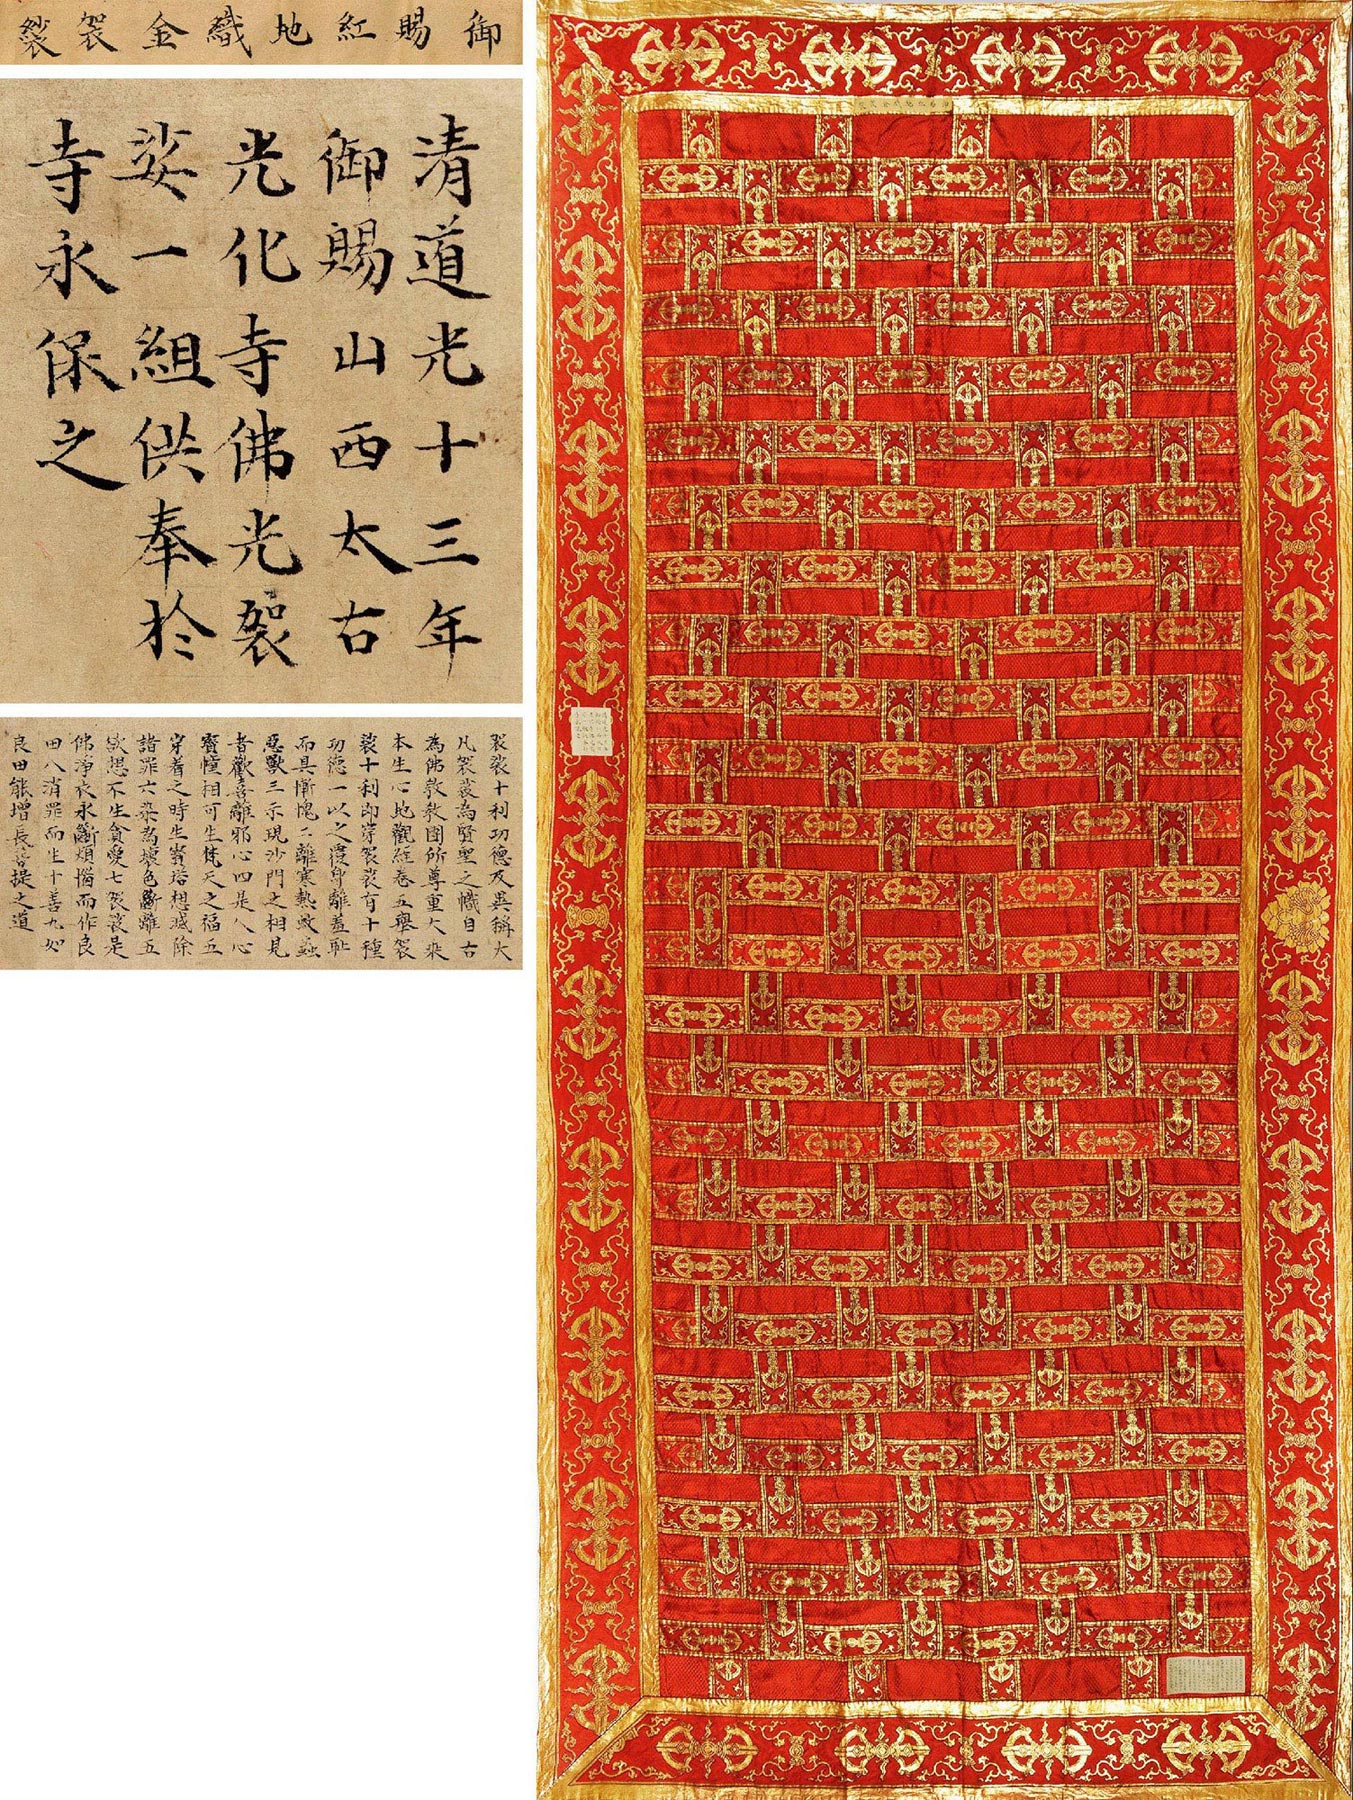 御賜紅地織金袈裟
清道光十三年
御賜山西太古
光化寺佛光袈
娑一組供奉於
寺永保之
袈裟十利功德及異稱大
凡袈裟為賢聖之幟自古
為佛教教團所尊重大乘
本生心地觀經卷五舉袈
裟十利即穿袈裟有十種
功德一以之覆身離羞恥
而具慚愧二離寒熱蚊蟲
惡獸三示現沙門之相見
者歡喜離邪心四是人心
寶幢相可生梵天之福五
穿著之時生寶塔想滅除
諸罪六染為壞色斷離五
欲想不生貪愛七袈裟是
佛淨衣永斷煩惱而作良
田八消罪而生十善九如
良田能增長菩提之道